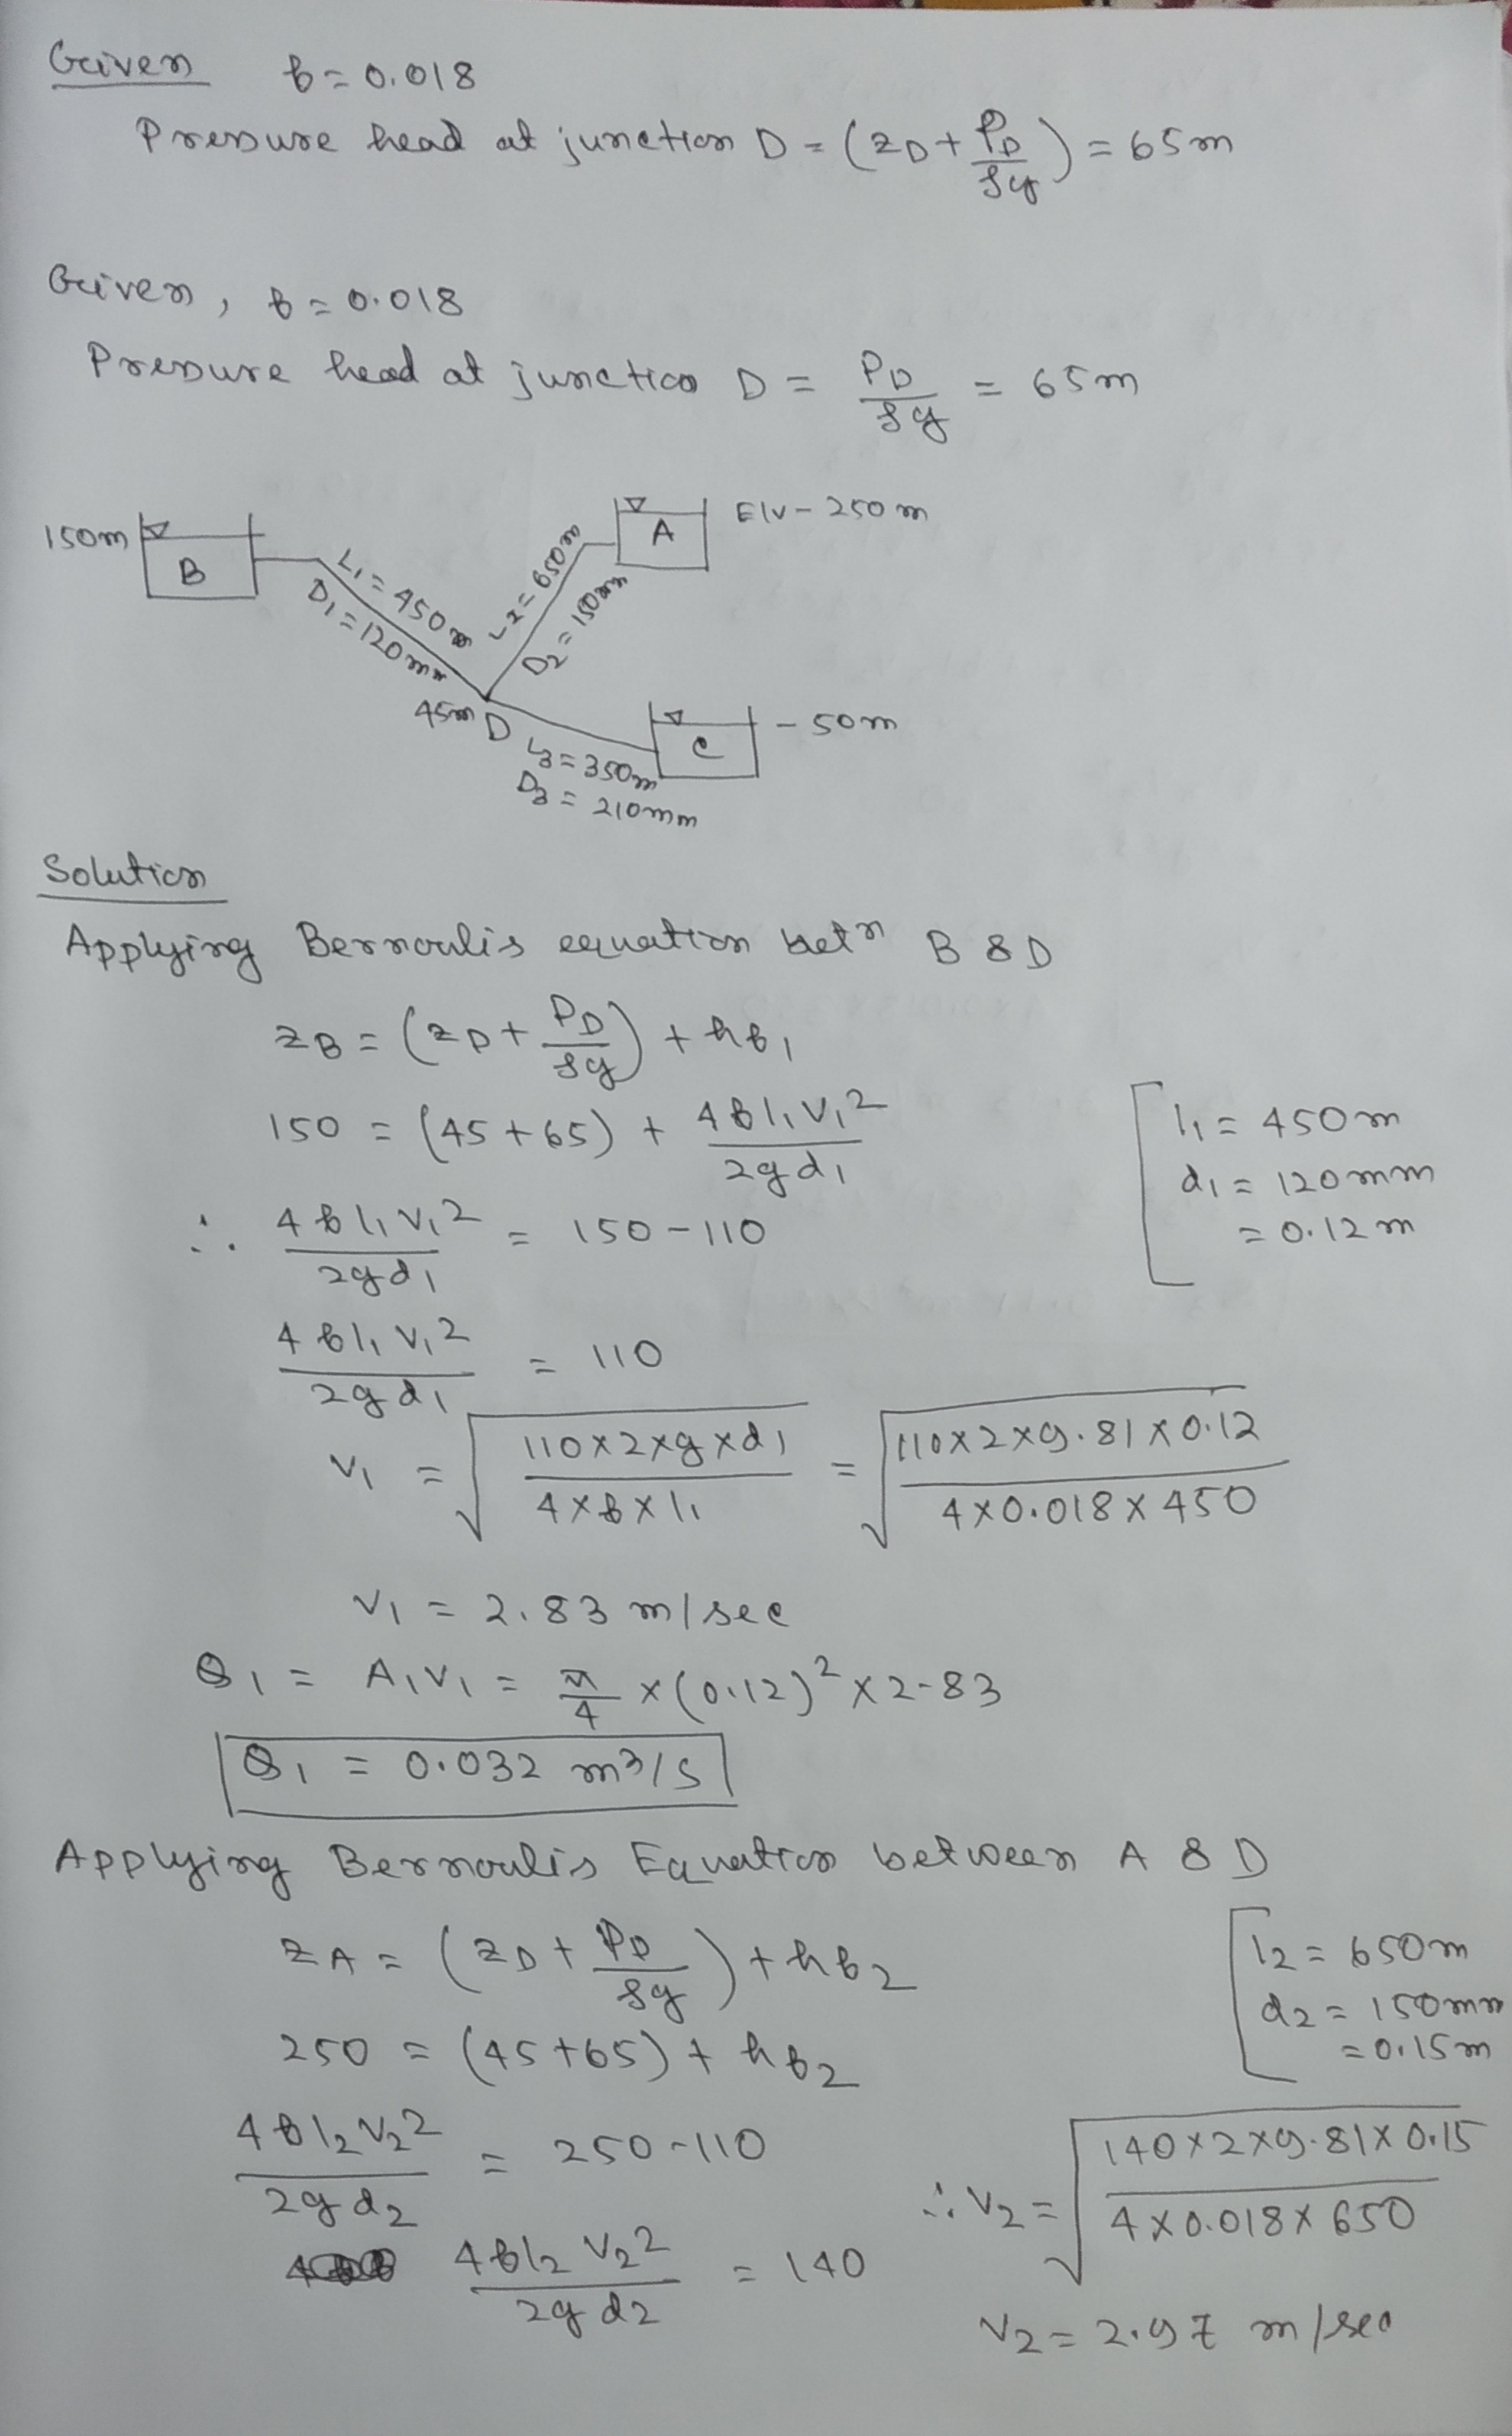 Given f = 0.018
Pressure head at junction D = (zD + PD/ρg) = 65m
Given, f = 0.018
Pressure head at junction D = PD/ρg = 65m
150m
B
L1 = 450m
D1 = 120mm
L2 = 650m
D2 = 150mm
A
Elv - 250m
45m D
L3 = 350m
D3 = 210mm
C
- 50m
Solution
Applying Bernoulis equation betn B & D
zB = (zD + PD/ρg) + hf1
150 = (45+65) + 4fl1V1²/2gd1
l1 = 450m
d1 = 120mm
= 0.12m
∴ 4fl1V1²/2gd1 = 150-110
4fl1V1²/2gd1 = 110
V1 = √(110×2×g×d1/4×f×l1) = √(110×2×9.81×0.12/4×0.018×450)
V1 = 2.83 m/sec
Q1 = A1V1 = π/4 × (0.12)² × 2.83
Q1 = 0.032 m3/s
Applying Bernoulis Equation between A & D
zA = (zD + PD/ρg) + hf2
250 = (45+65) + hf2
l2 = 650m
d2 = 150mm
= 0.15m
4fl2V2²/2gd2 = 250-110
4fl2V2²/2gd2 = 140
∴ V2 = √(140×2×9.81×0.15/4×0.018×650)
V2 = 2.97 m/sec